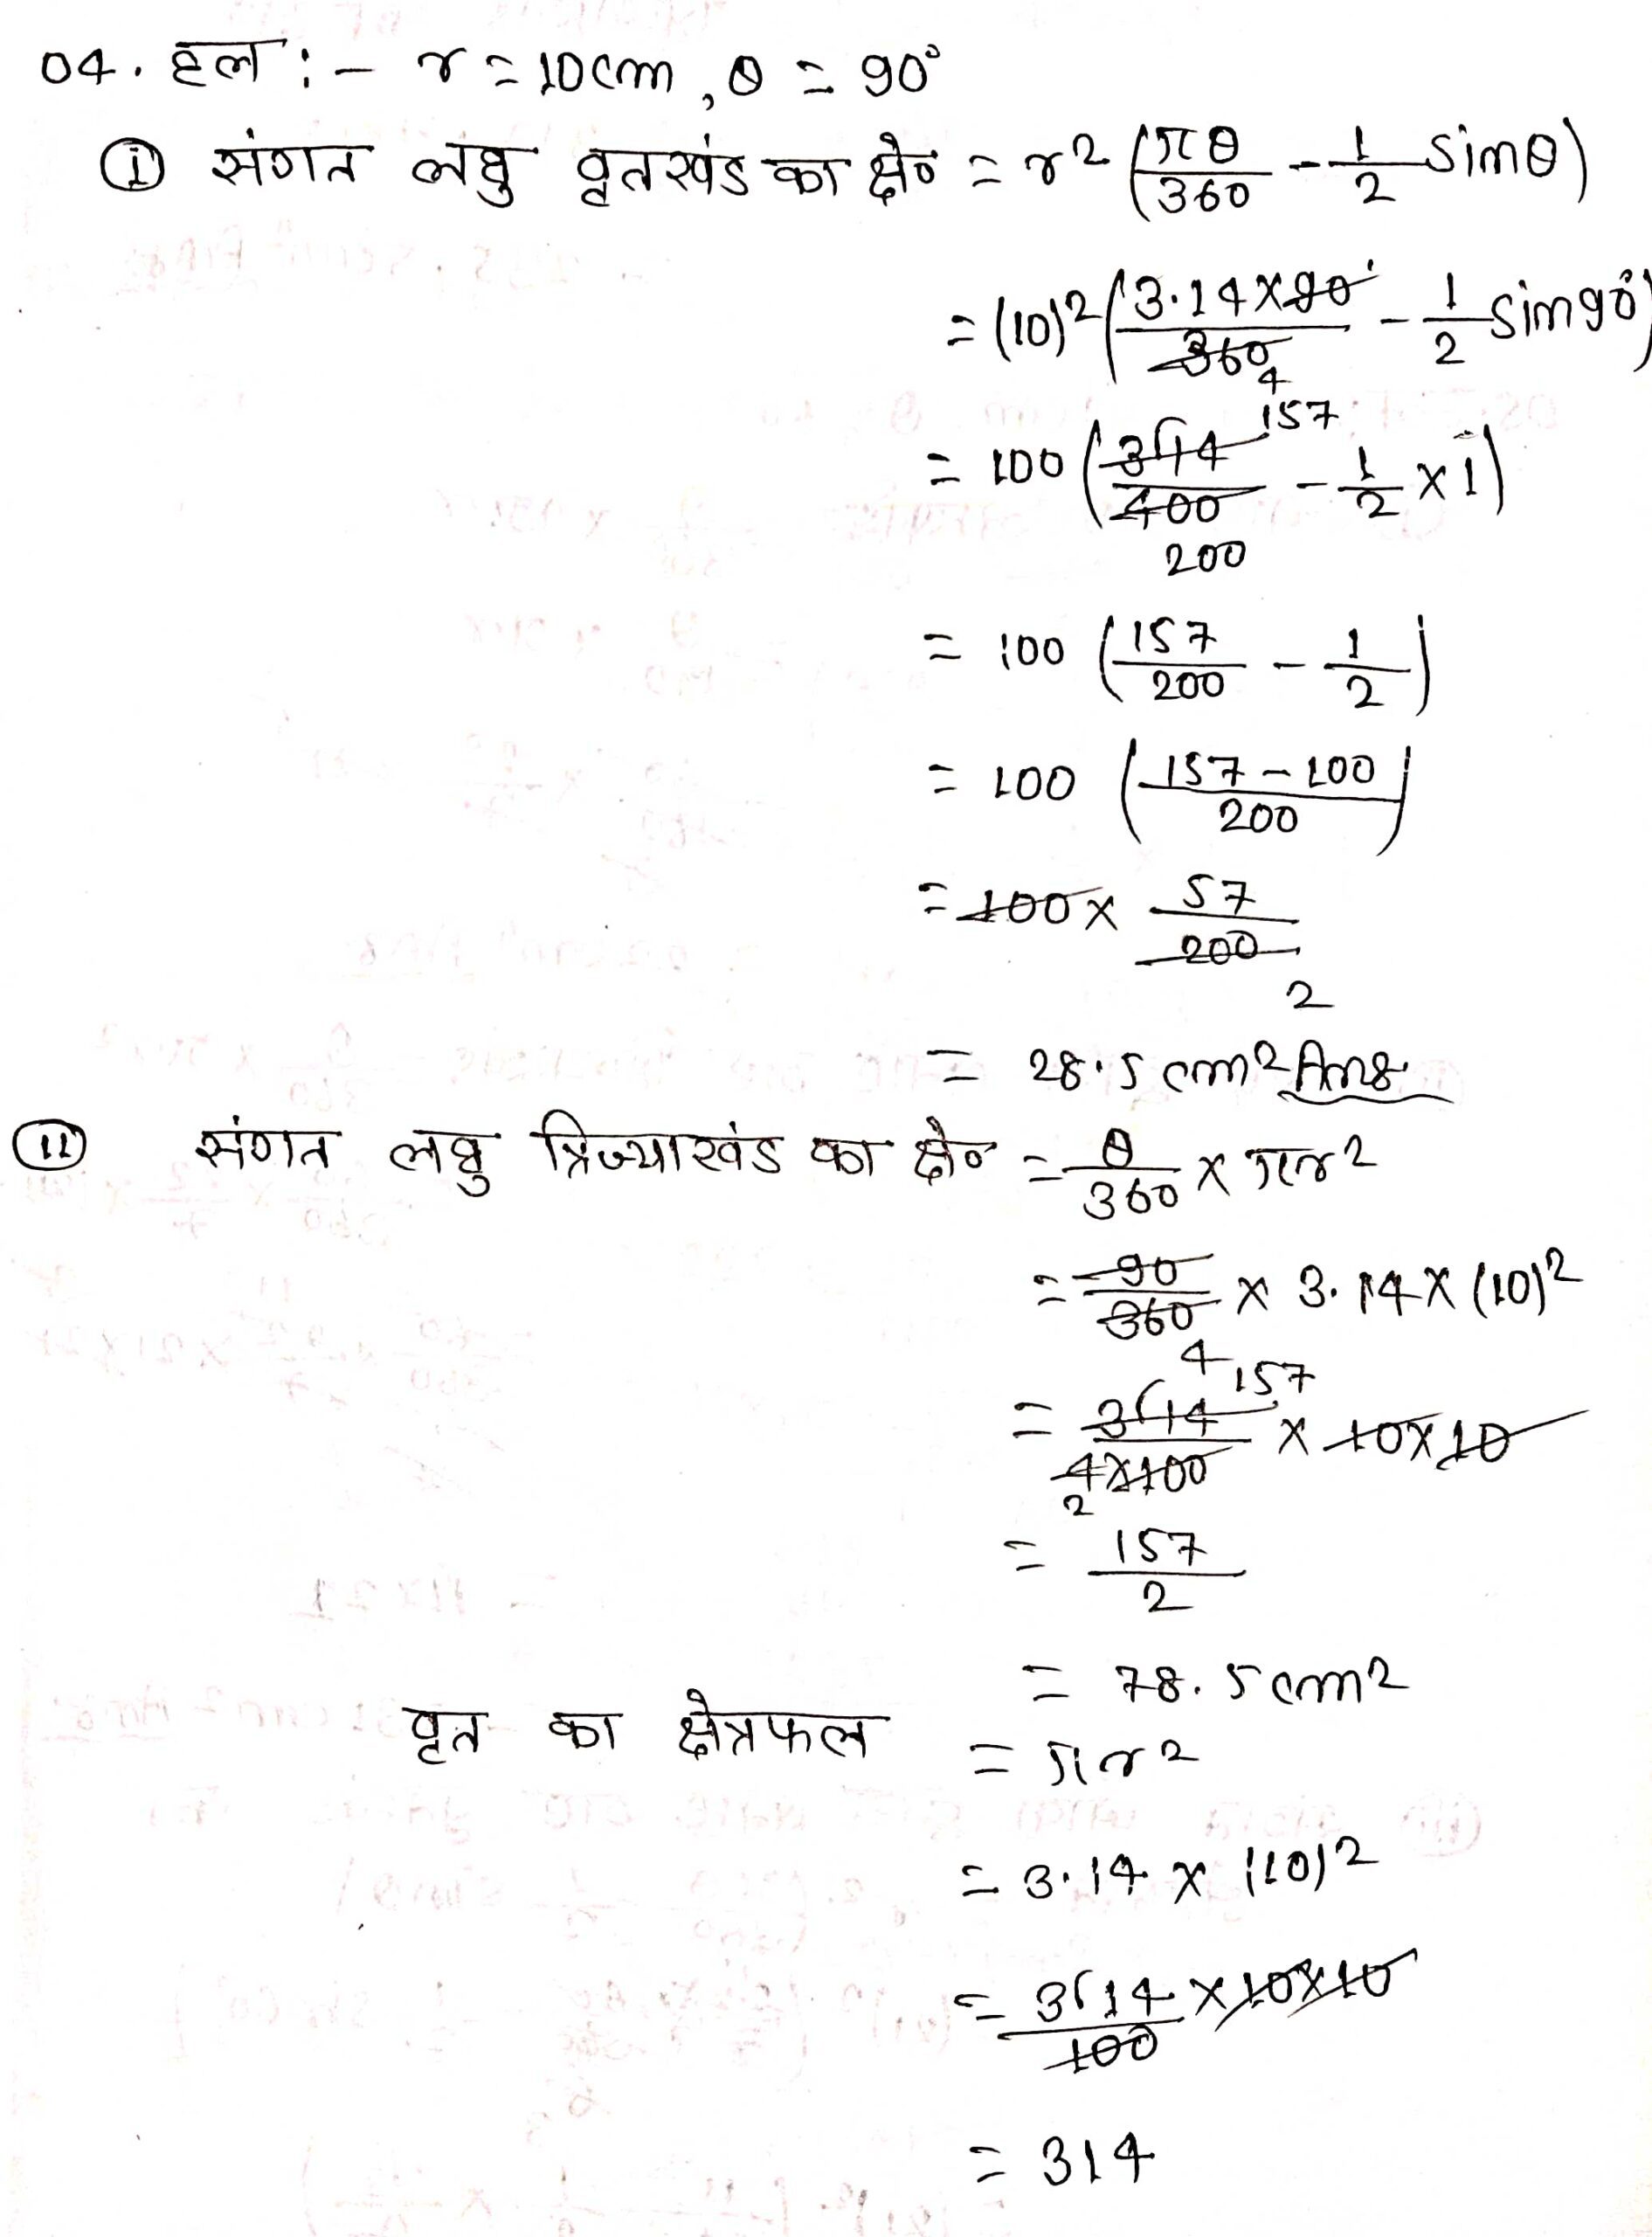 04. हल :- r = 10cm, θ = 90°
(i) संगत लघु वृतखंड का क्षे० = r² (πθ/360 - 1/2 sinθ)
= (10)² (3.14×90/360 - 1/2 sin90°)
1
4
157
= 100 (314/400 - 1/2 × 1)
200
= 100 (157/200 - 1/2)
= 100 (157-100/200)
= 100 × 57/200
2
= 28.5 cm² Ans.
(ii) संगत लघु त्रिज्याखंड का क्षे० = θ/360 × πr²
= 90/360 × 3.14 × (10)²
4
157
= 314/4×100 × 10×10
2
= 157/2
= 78.5 cm²
वृत का क्षेत्रफल = πr²
= 3.14 × (10)²
= 314/100 × 10×10
= 314